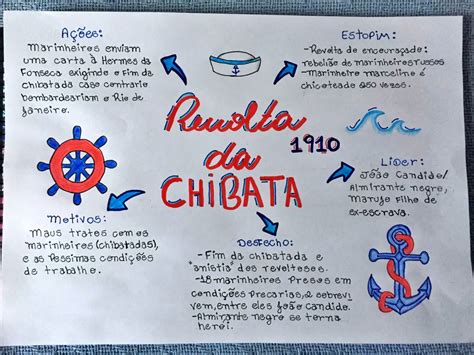 Ações:
Marinheiros enviam
uma carta à Hermes da
Fonseca exigindo o fim da
chibatada caso contrario
bombardeariam o Rio de
Janeiro.
Estopim:
- Revolta de encouraçado:
rebelião de marinheiros russos.
- Marinheiro marcelino é
chicoteado 250 vezes.
Revolta
da
CHIBATA
1910
Líder:
João Candido/
Almirante negro,
Marujo filho de
ex-escrava.
Motivos:
Maus tratos com os
marinheiros (chibatadas),
e as Pessimas condições
de trabalho.
Desfecho:
- Fim da chibatada e
"anistia" dos revelteses.
- 18 marinheiros presos em
condições precarias, 2 sobrevi
vem, entre eles João Candido.
- Almirante negro se torna
herói.